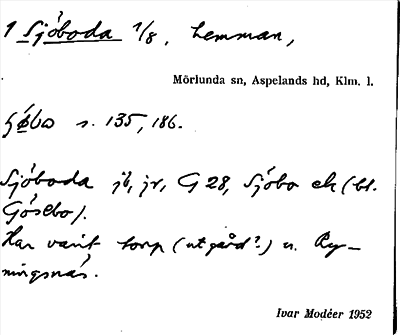 1 Sjöboda 1/8, hemman,
Mörlunda sn, Aspelands hd, Klm. l.
s. 135, 186.
Sjöboda jb, jr, G 28, Sjöbo ek (bl.
Gösebo).
Har varit torp (utgård?) u. Ry-
ningsnäs.
Ivar Modéer 1952